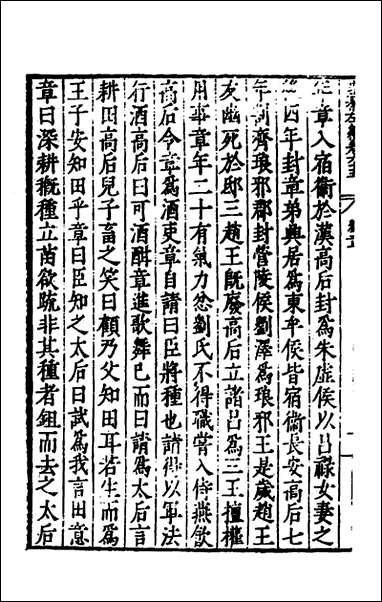 年章入宿衞於漢高后封爲朱虛侯以呂祿女妻之
四年封章弟興居爲東牟侯皆宿衞長安高后七
年割齊琅邪郡封營陵侯劉澤爲琅邪王是歲趙王
友幽死於邸三趙王旣廢高后立諸呂爲三王擅權
用事章年二十有氣力忿劉氏不得職嘗入侍燕飲
高后令章爲酒吏章自請曰臣將種也請得以軍法
行酒高后曰可酒酣章進歌舞已而曰請爲太后言
耕田高后兒子畜之笑曰顧乃父知田耳若生而爲
王子安知田乎章曰臣知之太后曰試爲我言田意
章曰深耕穊種立苗欲疏非其種者鉏而去之太后